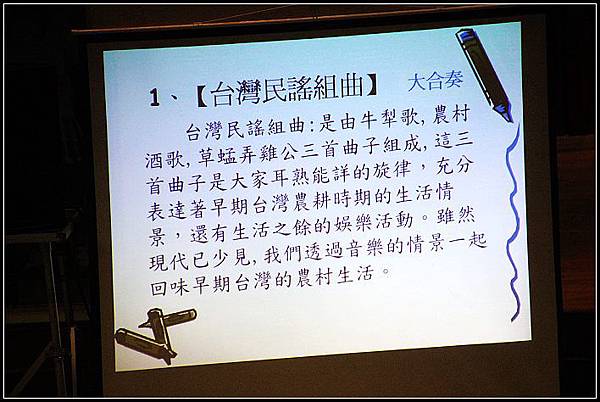 1、【台灣民謠組曲】 大合奏
台灣民謠組曲:是由牛犁歌,農村
酒歌,草蜢弄雞公三首曲子組成,這三
首曲子是大家耳熟能詳的旋律，充分
表達著早期台灣農耕時期的生活情
景，還有生活之餘的娛樂活動。雖然
現代已少見,我們透過音樂的情景一起
回味早期台灣的農村生活。